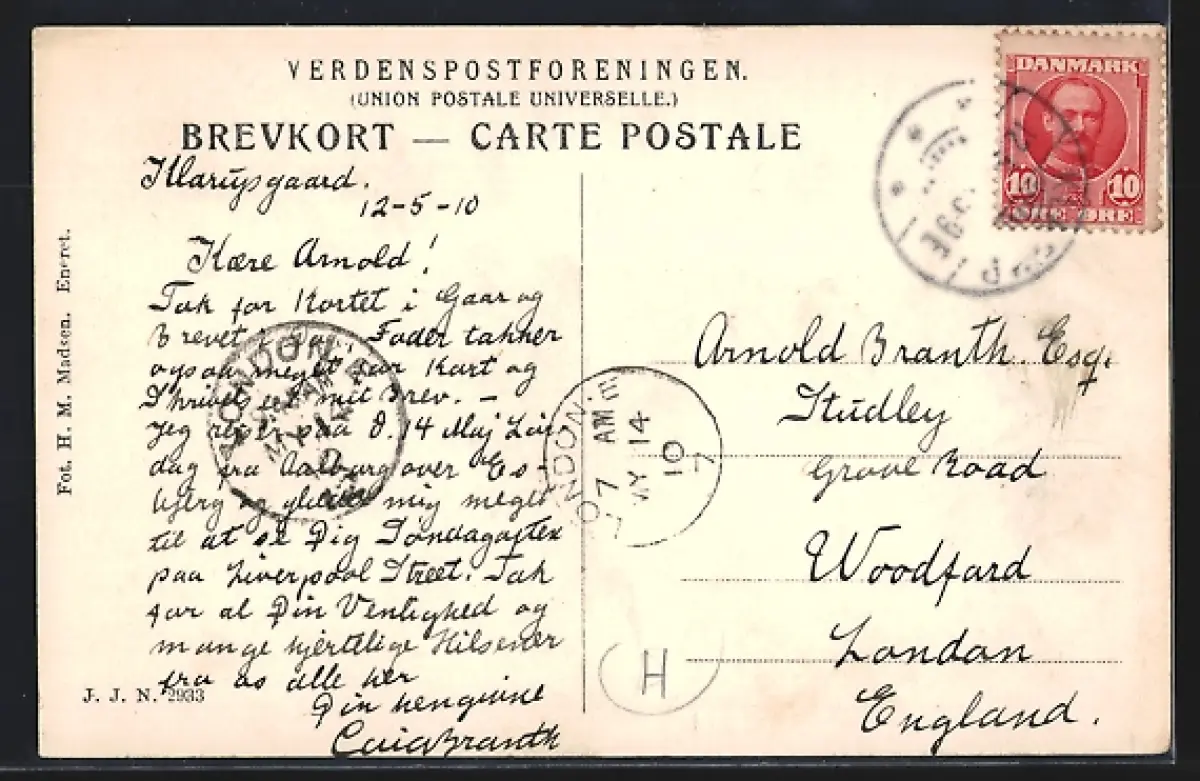 VERDENSPOSTFORENINGEN.
(UNION POSTALE UNIVERSELLE.)
BREVKORT — CARTE POSTALE
DANMARK
10 10
ØRE ØRE
12-5-10
Kære Arnold!
Tak for Kortet i Gaar og
Brevet i Dag. Fader takker
ogsaa meget for Kort og
mit Brev. —
Jeg rejser paa d. 14 Maj Lør-
dag fra Aalborg over Es-
bjerg og glæder mig meget
til at se Dig Søndagaften
paa Liverpool Street. Tak
for al Din Venlighed og
mange hjertelige Hilsener
fra os alle her
Din hengivne
Branth
Fot. H. M. Madsen. Eneret.
J. J. N. 2933
LONDON
MY 14
LONDON. E
7 AM
MY 14
10
7
H
Arnold Branth Esq.
Studley
Grove Road
Woodford
London
England.